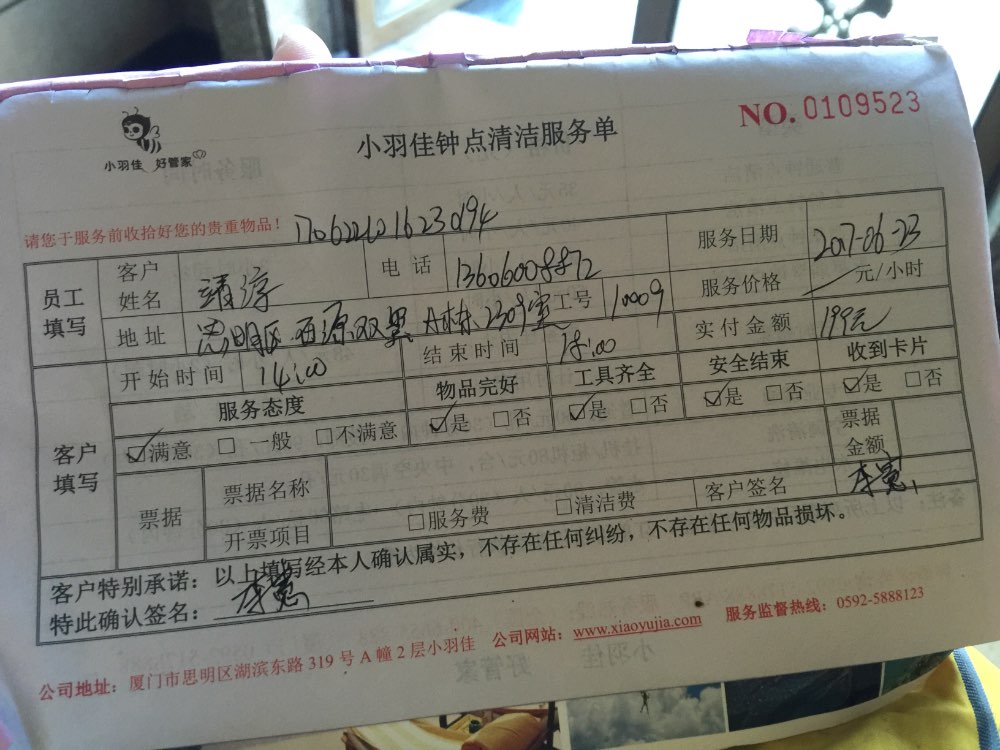 小羽佳 好管家
小羽佳钟点清洁服务单
NO. 0109523
请您于服务前收拾好您的贵重物品！
员工填写 客户姓名 靖淳 电话 13606008872 服务日期 2017-06-23
地址 思明区 西源双翼 A栋 2309室 工号 10009 服务价格 元/小时
开始时间 14:00 结束时间 18:00 实付金额 199元
客户填写 服务态度 物品完好 工具齐全 安全结束 收到卡片
☑满意 □一般 □不满意 ☑是 □否 ☑是 □否 ☑是 □否 ☑是 □否
票据 票据名称 票据金额
开票项目 □服务费 □清洁费 客户签名
客户特别承诺：以上填写经本人确认属实，不存在任何纠纷，不存在任何物品损坏。
特此确认签名：
公司地址：厦门市思明区湖滨东路319号A幢2层小羽佳 公司网站：www.xiaoyujia.com 服务监督热线：0592-5888123